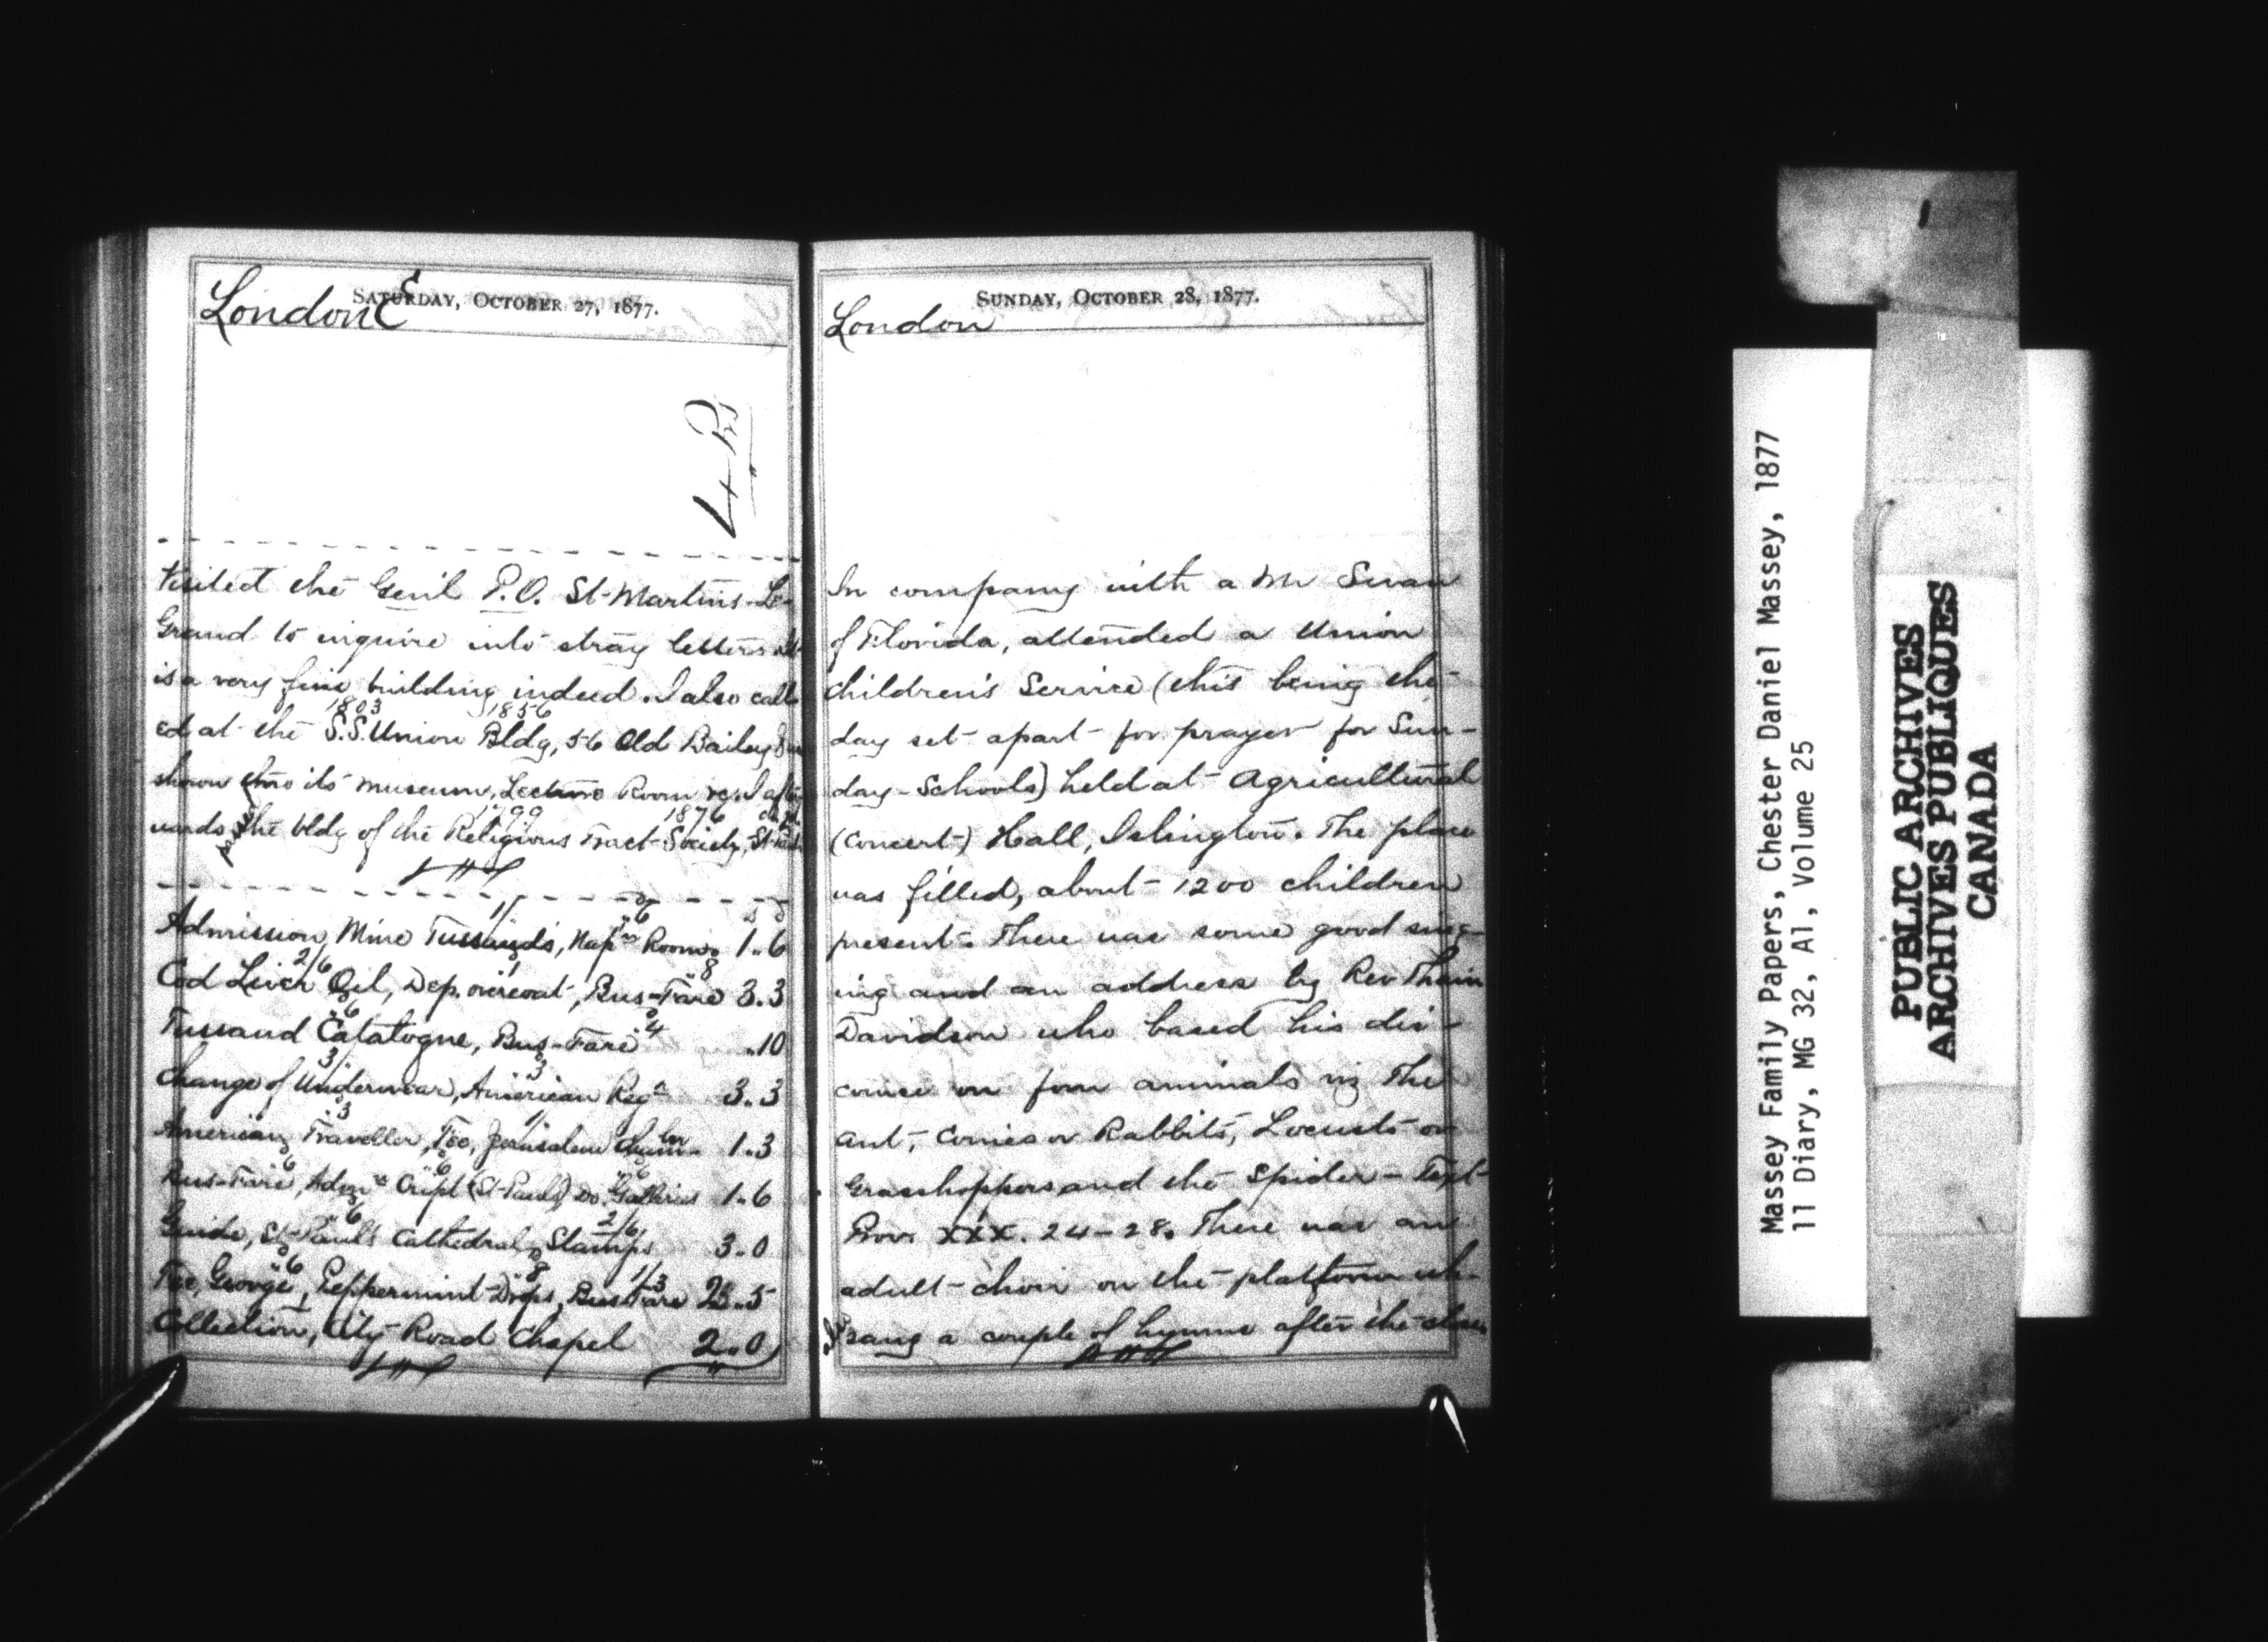 SATURDAY, OCTOBER 27, 1877.
London E
4 Ps
Visited the Genl P.O. St-Martins-Le-
Grand to inquire into stray letters. It
is a very fine building indeed. I also call
1803 1856
ed at the S.S. Union Bldg, 56 Old Bailey & was
shown thro its museum, Lecture Room &c. I after
1799 1876
wards the bldg of the Religious Tract Society, St Pauls
s d
1/ 6
Admission, Mme Tussauds, Napn Rooms 1.6
2/6 1 8
Cod Liver Oil, Dep. overcoat, Bus-Fare 3.3
6 4
Tussaud Catalogue, Bus-Fare .10
3/ 3
Change of Underwear, American Regr 3.3
3 1/
American Traveller, Fee, Jerusalem Chambr 1.3
6 6 6
Bus-Fare, Admn Cript (St-Pauls) Do. Galleries 1.6
6 2/6
Guide, St-Paul's Cathedral, Stamps 3.0
6 8 1/3
Fee, George, Peppermint Drops, Bus Fare 2.5
Collection, City Road Chapel 2.0
SUNDAY, OCTOBER 28, 1877.
London
In company with a Mr Swan
of Florida, attended a Union
Children's Service (this being the
day set apart for prayer for Sun-
day-Schools) held at Agricultural
(Concert) Hall, Islington. The place
was filled, about 1200 children
present. There was some good sing-
ing and an address by Rev Thain
Davidson who based his dis-
course on four animals viz The
Ant, Conies or Rabbits, Locusts or
Grasshoppers and the Spider - Text
Prov XXX. 24-28. There was an
adult-choir on the platform wh.
sang a couple of hymns after the close
Massey Family Papers, Chester Daniel Massey, 1877
11 Diary, MG 32, A1, Volume 25
PUBLIC ARCHIVES
ARCHIVES PUBLIQUES
CANADA